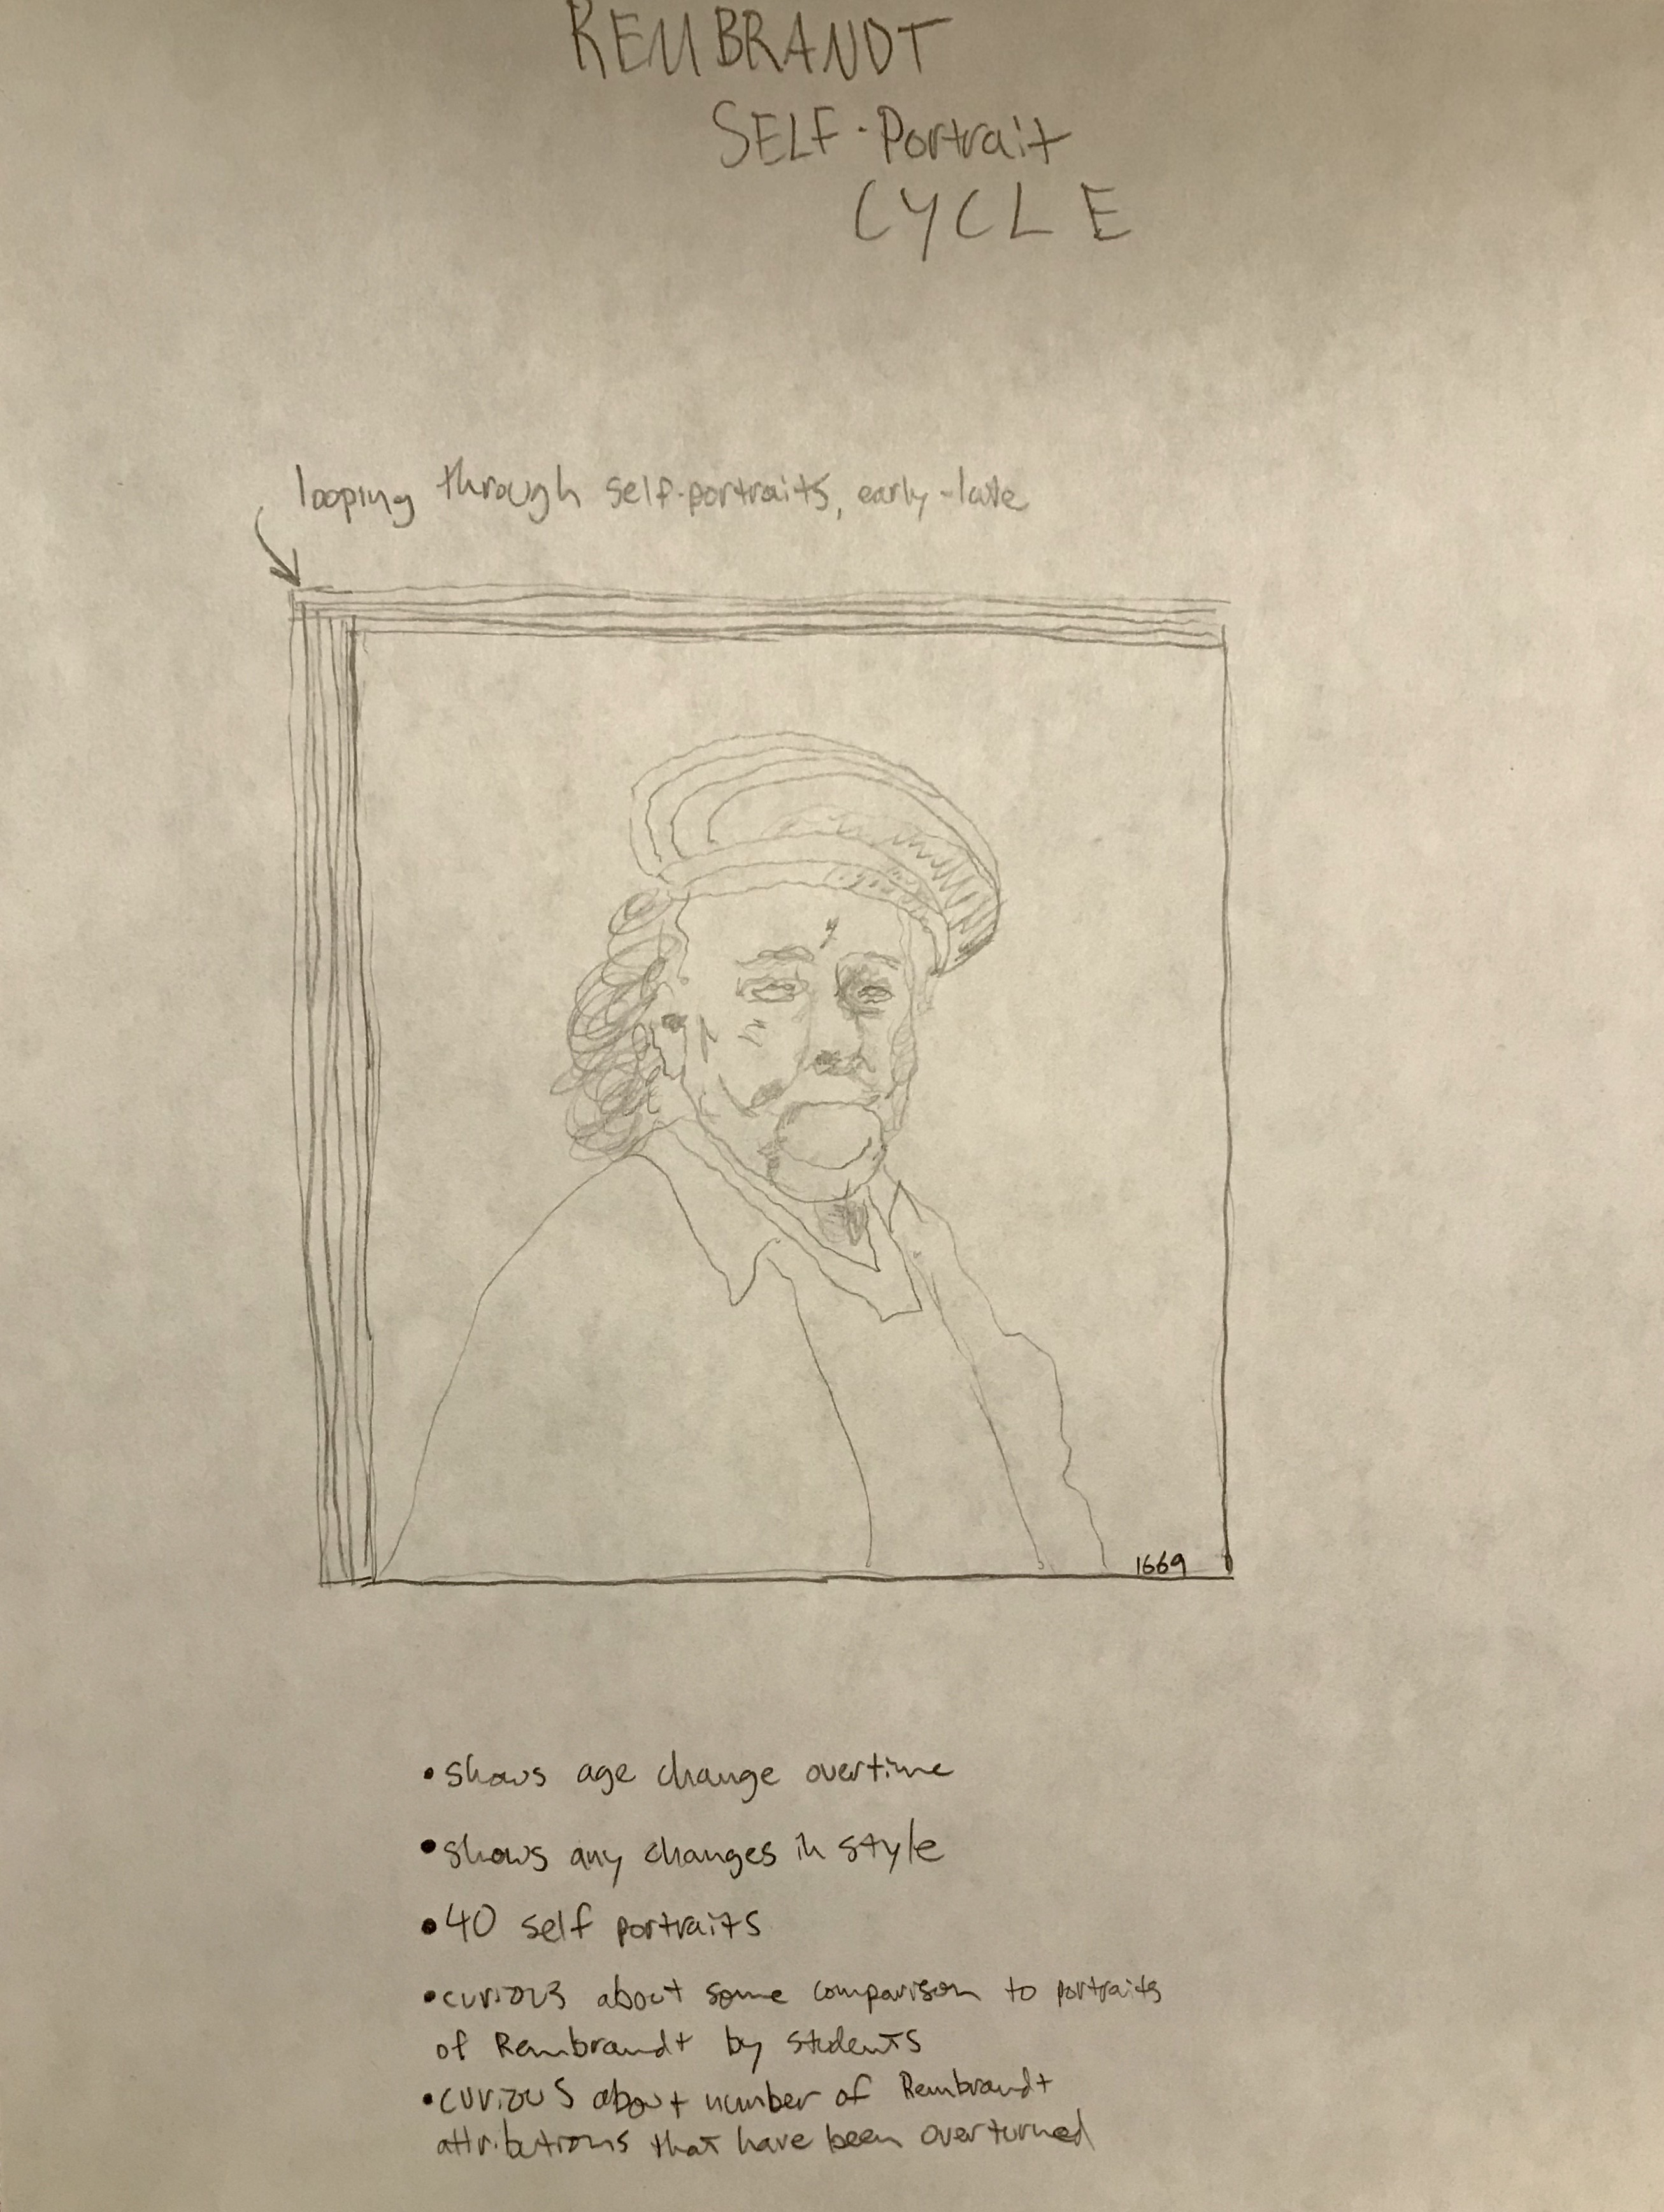 REMBRANDT
SELF-Portrait
CYCLE
looping through self-portraits, early-late
1669
• shows age change overtime
• shows any changes in style
• 40 self portraits
• curious about some comparison to portraits
of Rembrandt by students
• curious about number of Rembrandt
attributions that have been overturned